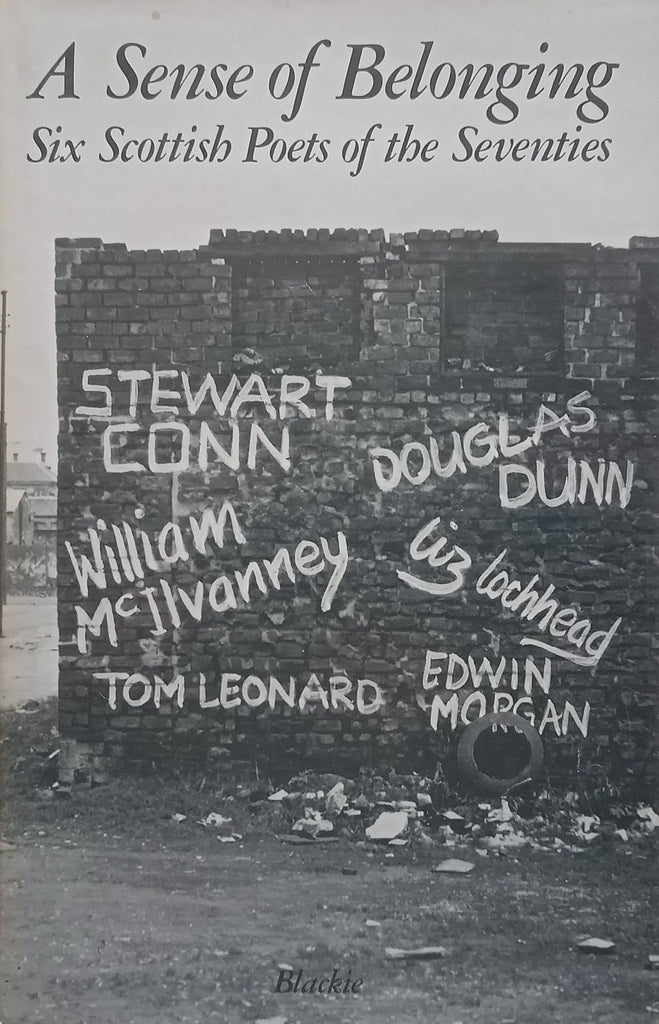 A Sense of Belonging
Six Scottish Poets of the Seventies
STEWART
CONN
DOUGLAS
DUNN
William
McIlvanney
Liz Lochhead
TOM LEONARD
EDWIN
MORGAN
Blackie